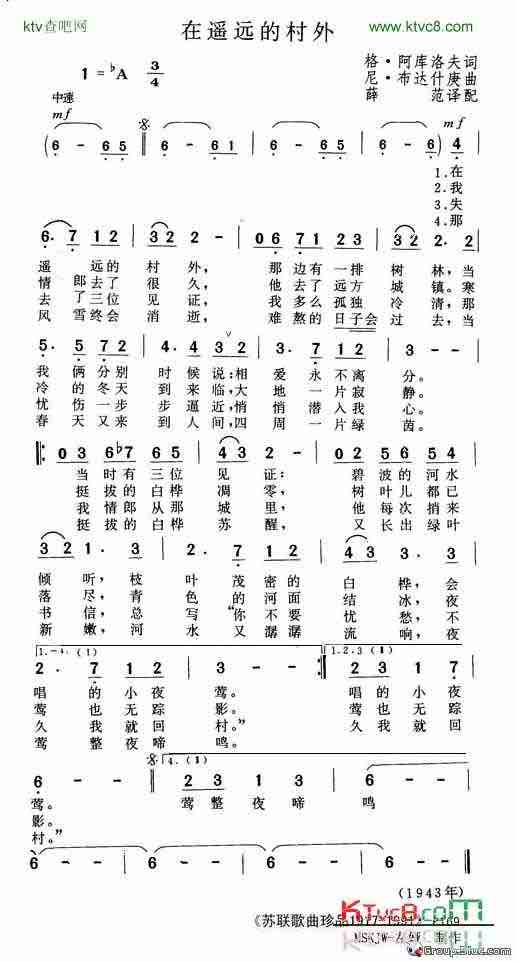 ktv查吧网
www.ktvc8.com
在遥远的村外
1=♭A 3/4
格·阿库洛夫词
尼·布达什庚曲
薛 范译配
中速
mf
(6 - 65 6 - 65 6 - 61 6 - 6) 4
mf
1.在
2.我
3.失
4.那
6. 7 12 32 2 - 06 71 23 32 2. 2
遥 远的 村 外, 那边有一排 树 林,当
情 郎去了 很 久, 他去了远方 城 镇。寒
去 了三位 见 证, 我多么孤独 冷 清,那
风 雪终会 消 逝, 难熬的日子会 过 去,当
5. 5 72 4. 4 32 3. 7 12 3 - -
我 俩分别 时 候说:相 爱 永不离 分。
冷 的冬天 到 来临,大 地 一片寂 静。
忧 伤一步 步 逼近,悄 悄潜入我 心。
春 天又来 到 人间,四 周 一片绿 茵。
03 6♭7 65 43 3 - 02 56 54
当时有三位 见 证: 碧波的河水
挺拔的白桦 凋 零, 树叶儿都已
我情郎从那 城 里, 他每次捎来
挺拔的白桦 苏 醒, 又长出绿叶
32 1. 3 2. 7 12 43 3. 3
倾 听,枝 叶 茂密的 白 桦,会
落 尽,青 色 的河面 结 冰,夜
书 信,总 写“你不要 忧 愁,不
新 嫩,河 水 又潺潺 流 响,夜
1.-4.(1)
1.2.3(1)
2. 7 12 3 - - 2 3 1 7
唱 的小夜 莺。 唱 的 小夜
莺 也无踪 影。 莺 也 无踪
久 我就回 村。” 久 我 就回
莺 整夜啼 鸣。
4.(1)
6 - - 2 3 1 3 6 - -
莺。 莺 整 夜 啼 鸣
影。
村。”
6 - - 6 - - 6 - - 6 - -
(1943年)
KTvc8.com
MSKJW 制作